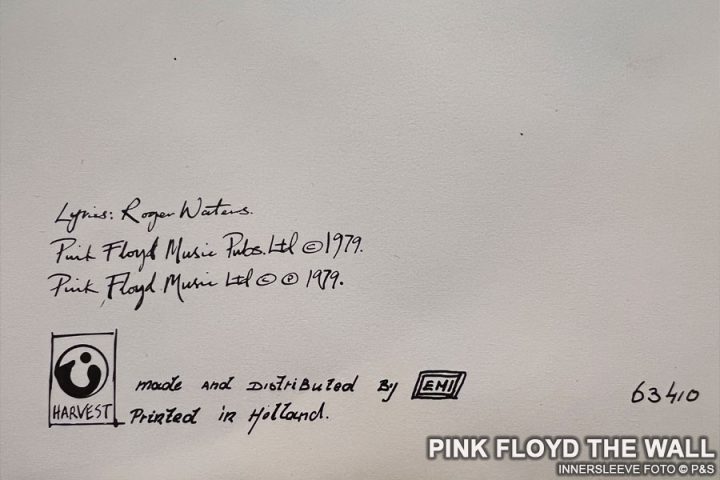 Lyrics: Roger Waters.
Pink Floyd Music Pubs. Ltd © 1979.
Pink Floyd Music Ltd © ℗ 1979.
HARVEST
made and Distributed By EMI
Printed in Holland.
63410
PINK FLOYD THE WALL
INNERSLEEVE FOTO © P&S